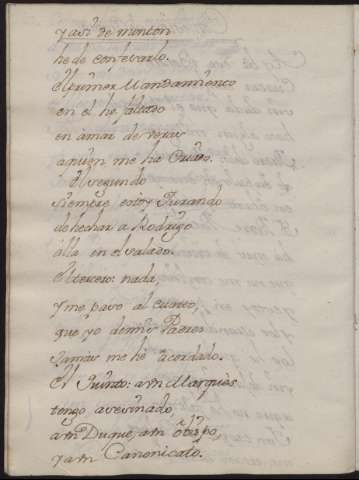 y asi de monton
he de confesarlo.
El primer Mandamiento
en el he faltado
en amar de veras
a quien me ha
El segundo
siempre estoy Jurando
de hechar a Rodrigo
alla en el salado.
El tercero: nada,
y me paso al cuarto,
que yo de mis Padres
Jamas me he acordado.
El Quinto: a un Marques
tengo asesinado,
a un Duque, a un obispo,
y a un Canonicato.